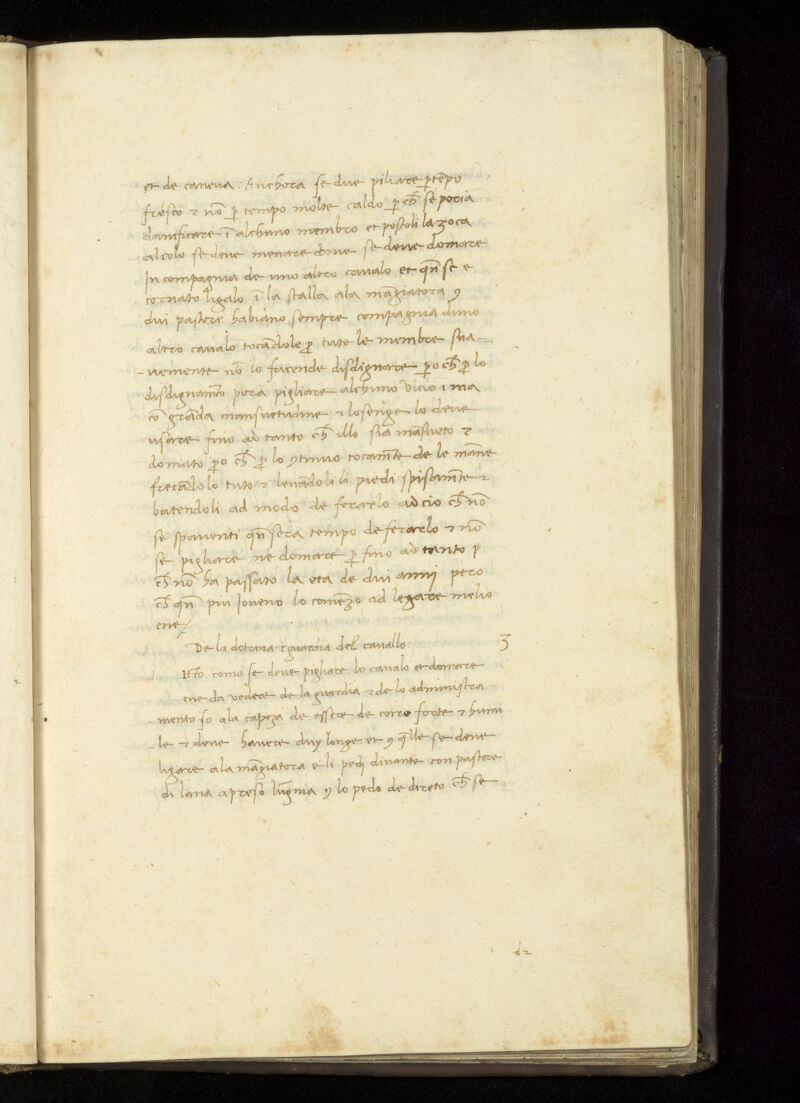 et de caneva: Anchora se due piliare p̱ tēpo
fresco ⁊ nō p̱ tempo molte caldo p̱ch̄ se poria
damficare ī alchuno membro et postoli la zoca
al colo se deve menare dove se deve domare
In compagnia de uno altro cavalo et qn̄ se e
tornato ligalo ī la stalla ala māgiatora ⁊
dui pastore habiano sempre compagnia duno
altro cavalo tocādole p̱ tuto le membre sua-
-vemente nō lo facende disdignare p̱o ch̄ p̱ lo
disdignamt̄o pora pigliare alchuno vicio ma
cō grāda mansuetudine ⁊ losenge lo deve
usare fino ad tanto ch̄ illo sia māsueto ⁊
domato p̱o ch̄ p̱ lo ꝯtinuo tocamt̄e de le mane
frecādolo tuto ⁊ levādoli li piedi spisamt̄e ⁊
batendoli ad modo de ferarlo adcio ch̄ nō
se spaventi qn̄ sera tempo de ferarlo ⁊ nō
se pigliare ne domare p̱ fino ad tanto
ch̄ nō ha passato la eta de dui anni pero
ch̄ qn̄ piu joveno lo comēzo ad legare melio
ene
De la dotrina ⁊ guardia del cavallo 3
como se deve pigliare lo cavalo et domare
ene da vedere de la guardia ⁊ de lo administra
mento so ala capeza de essere de corro forte ⁊ humi
le ⁊ deve havere duy longe et ꝯ q̄lle se deve
ligare ala māgiatora e li pedi dinante con pastore
di lana apreso ꝯ lo pedo de direto ch̄ se
d2